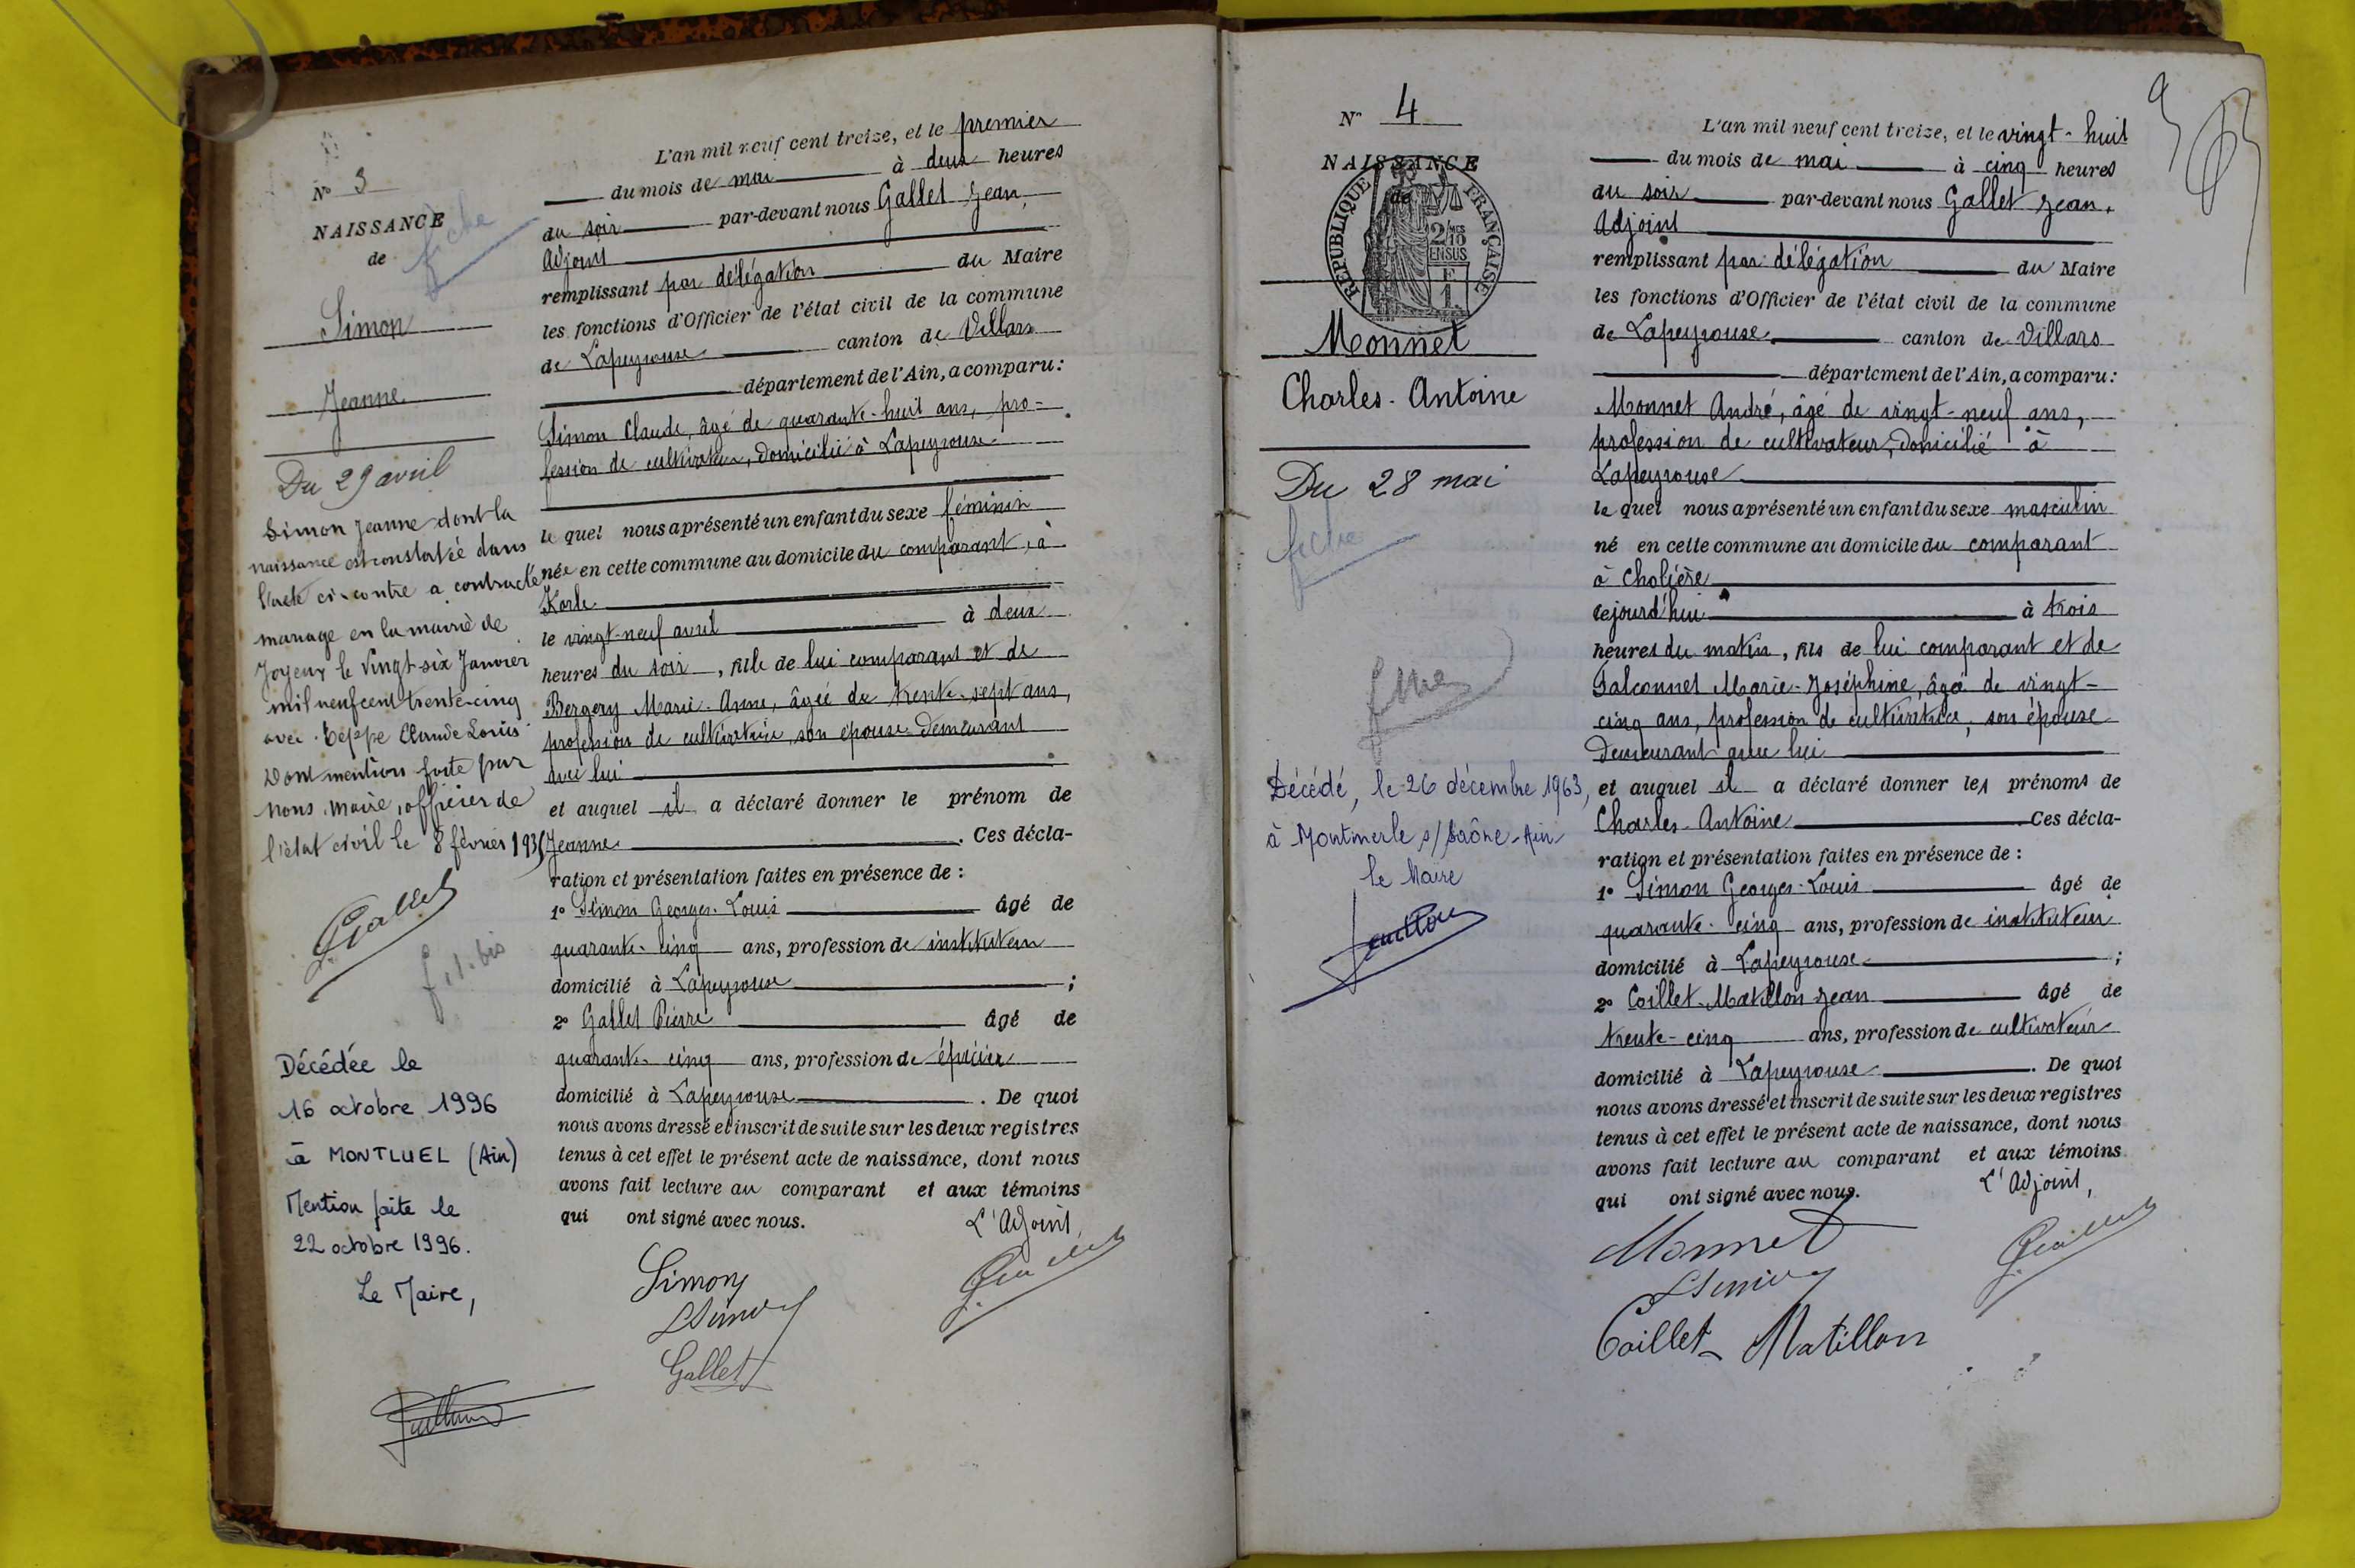 N° 3
NAISSANCE
de
fiche
Simon
Jeanne
Du 29 avril
Simon Jeanne dont la
naissance est constatée dans
l'acte ci-contre a contracté
mariage en la mairie de
Joyeux le vingt-six Janvier
mil neuf cent trente-cinq
avec Teppe Claude Louis
Dont mention faite par
nous, maire, officier de
l'état civil le 8 février 1935
Gallet
Décédée le
16 octobre 1996
à MONTLUEL (Ain)
Mention faite le
22 octobre 1996.
Le Maire,
L'an mil neuf cent treize, et le premier
du mois de mai à deux heures
du soir par-devant nous Gallet Jean,
Adjoint
remplissant par délégation du Maire
les fonctions d'Officier de l'état civil de la commune
de Lapeyrouse canton de Villars
département de l'Ain, a comparu:
Simon Claude, âgé de quarante-huit ans, pro-
fession de cultivateur, domicilié à Lapeyrouse
le quel nous a présenté un enfant du sexe féminin
née en cette commune au domicile du comparant, à
le vingt-neuf avril à deux
heures du soir, fille de lui comparant et de
Bergery Marie-Anne, âgée de trente-sept ans,
profession de cultivatrice, son épouse demeurant
avec lui
et auquel il a déclaré donner le prénom de
Jeanne. Ces décla-
ration et présentation faites en présence de :
1° Simon Georges-Louis âgé de
quarante-cinq ans, profession de instituteur
domicilié à Lapeyrouse ;
2° Gallet Pierre âgé de
quarante-cinq ans, profession de épicier
domicilié à Lapeyrouse. De quoi
nous avons dressé et inscrit de suite sur les deux registres
tenus à cet effet le présent acte de naissance, dont nous
avons fait lecture au comparant et aux témoins
qui ont signé avec nous.
L'Adjoint,
Simon
LSimon
Gallet
J. Gallet
N° 4
NAISSANCE
de
RÉPUBLIQUE FRANÇAISE
2/MES
10
EN SUS
F
1.
Monnet
Charles-Antoine
Du 28 mai
fiche
Décédé, le 26 décembre 1963,
à Montmerle s/Saône-Ain
le Maire
L'an mil neuf cent treize, et le vingt-huit
du mois de mai à cinq heures
du soir par-devant nous Gallet Jean,
Adjoint
remplissant par délégation du Maire
les fonctions d'Officier de l'état civil de la commune
de Lapeyrouse canton de Villars
département de l'Ain, a comparu:
Monnet André, âgé de vingt-neuf ans,
profession de cultivateur, domicilié à
Lapeyrouse
le quel nous a présenté un enfant du sexe masculin
né en cette commune au domicile du comparant
à Cholière
cejourd'hui à trois
heures du matin, fils de lui comparant et de
Falconnet Marie-Joséphine, âgée de vingt-
cinq ans, profession de cultivatrice, son épouse
demeurant avec lui
et auquel il a déclaré donner les prénoms de
Charles-Antoine. Ces décla-
ration et présentation faites en présence de :
1° Simon Georges-Louis âgé de
quarante-cinq ans, profession de instituteur
domicilié à Lapeyrouse ;
2° Coillet-Matillon Jean âgé de
trente-cinq ans, profession de cultivateur
domicilié à Lapeyrouse. De quoi
nous avons dressé et inscrit de suite sur les deux registres
tenus à cet effet le présent acte de naissance, dont nous
avons fait lecture au comparant et aux témoins
qui ont signé avec nous.
L'Adjoint,
Monnet
LSimon
Coillet-Matillon
J. Gallet